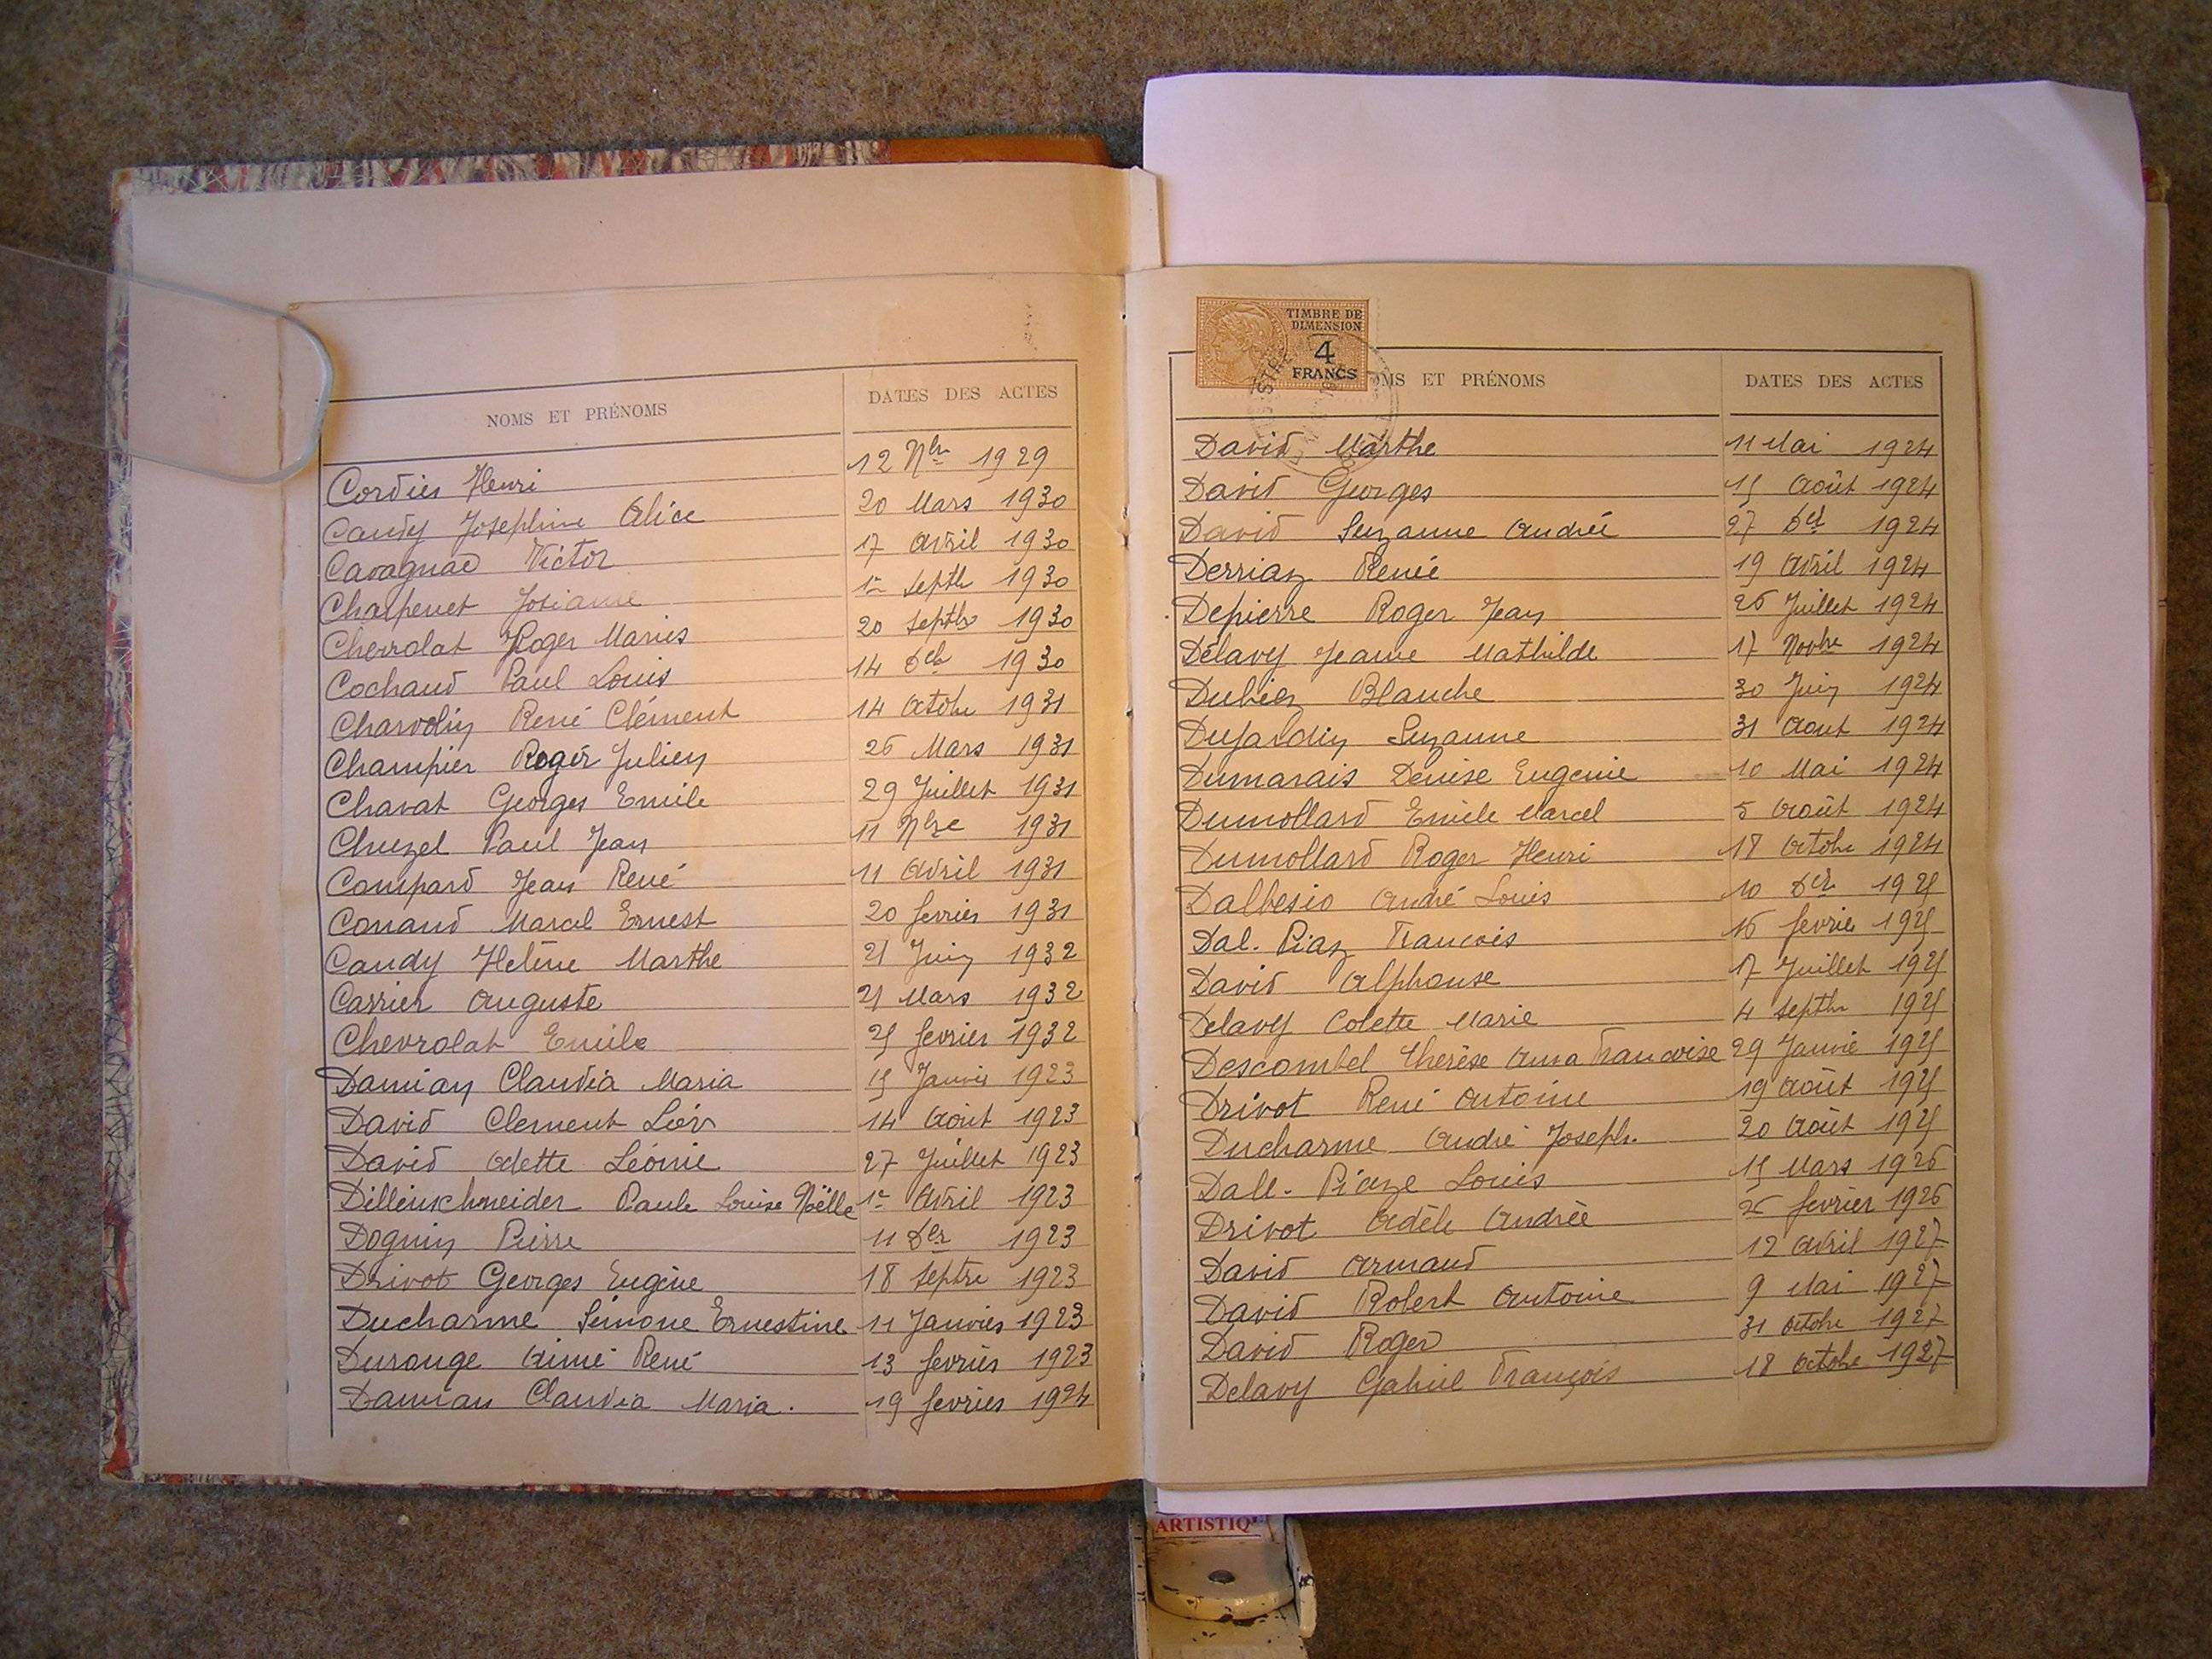 NOMS ET PRÉNOMS DATES DES ACTES
Cordier Henri 12 Nbre 1929
Caudy Josephine Alice 20 Mars 1930
Cavagnac Victor 17 avril 1930
Charpenet Josianne 1er Septb 1930
Chevrolat Roger Marius 20 Septbr 1930
Cochaud Paul Louis 14 Dcb 1930
Charvolin René Clément 14 Octobr 1931
Champier Roger Julien 26 Mars 1931
Chavat Georges Emile 29 Juillet 1931
Chuzel Paul Jean 11 Nbre 1931
Compard Jean René 11 avril 1931
Conand Marcel Ernest 20 fevrier 1931
Caudy Helène Marthe 21 Juin 1932
Carrier Auguste 21 Mars 1932
Chevrolat Emile 25 fevrier 1932
Damian Claudia Maria 15 Janvier 1923
David Clement 14 Août 1923
David Odette Léonie 27 Juillet 1923
Dillenschneider Paule Louise Noëlle 1er Avril 1923
Doguin Pierre 11 Dbr 1923
Drivot Georges Eugène 18 Septre 1923
Ducharme Simone Ernestine 11 Janvier 1923
Durouge Aimé René 13 fevrier 1923
Damian Claudia Maria. 19 fevrier 1924
TIMBRE DE
DIMENSION
4
FRANCS
OMS ET PRÉNOMS DATES DES ACTES
David Marthe 11 Mai 1924
David Georges 15 Août 1924
David Suzanne Andrée 27 1924
Derriaz Renée 19 Avril 1924
Depierre Roger Jean 26 Juillet 1924
Délavy Jeanne Mathilde 17 Novbre 1924
Dubiez Blanche 30 Juin 1924
Dujardin Suzanne 31 Aout 1924
Dumarais Denise Eugenie 10 Mai 1924
Dumollard Emile Marcel 5 Août 1924
Dumollard Roger Henri 18 Octobr 1924
Dalbesio André Louis 10 Dcr 1925
Dal. Piaz Francois 16 fevrie 1925
David Alphonse 17 Juillet 1925
Delavy Colette Marie 4 Septbr 1925
Descombel Therèse Anna Francoise 29 Janvie 1925
Drivot René Antoine 19 Août 1925
Ducharme André Joseph. 20 Août 1925
Dall. Piaze Louis 15 Mars 1926
Drivot Adèle Andrée 26 fevrier 1926
David Armand 12 Avril 1927
David Robert Antoine 9 Mai 1927
David Roger 31 Octobre 1927
Delavy Gabriel François 18 Octobre 1927
ARTISTIQ